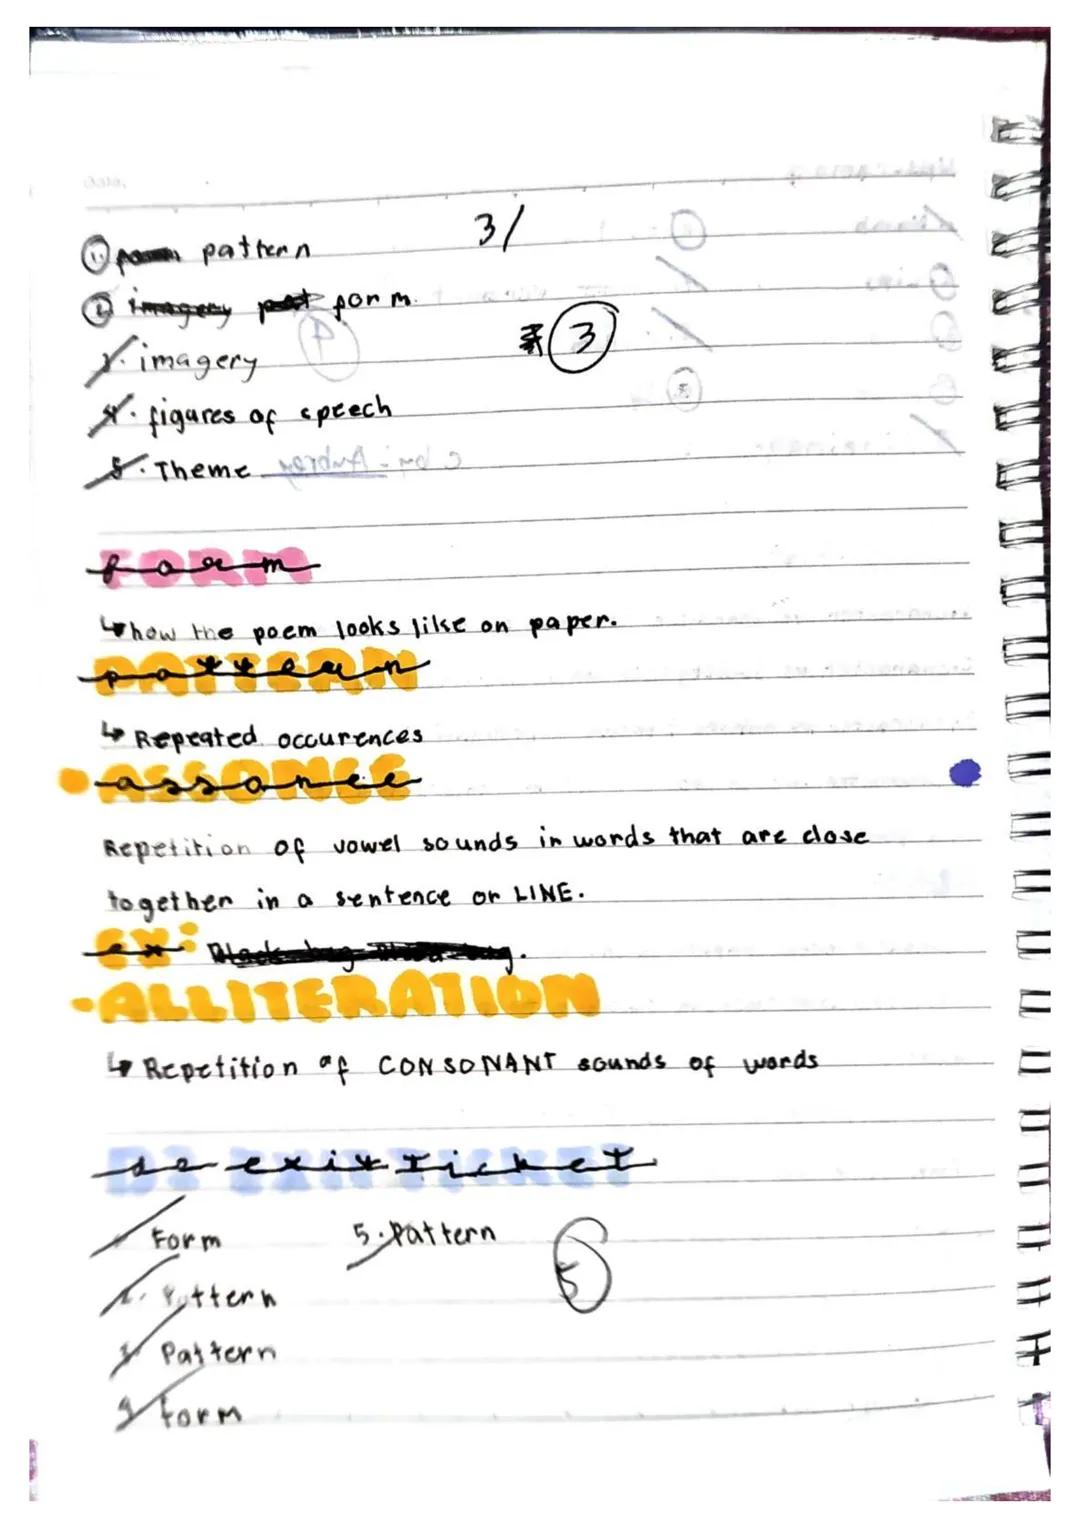 1. pattern 3/
2. form.
3. imagery 3
4. figures of speech
5. Theme
FORM
↳ how the poem looks like on paper.
PATTERN
↳ Repeated occurences
• ASSONCE
Repetition of vowel sounds in words that are close
together in a sentence or LINE.
EX:
• ALLITERATION
↳ Repetition of CONSONANT sounds of words
D2 EXIT TICKET
Form 5. Pattern 5
2. Pattern
3. Pattern
4 Form